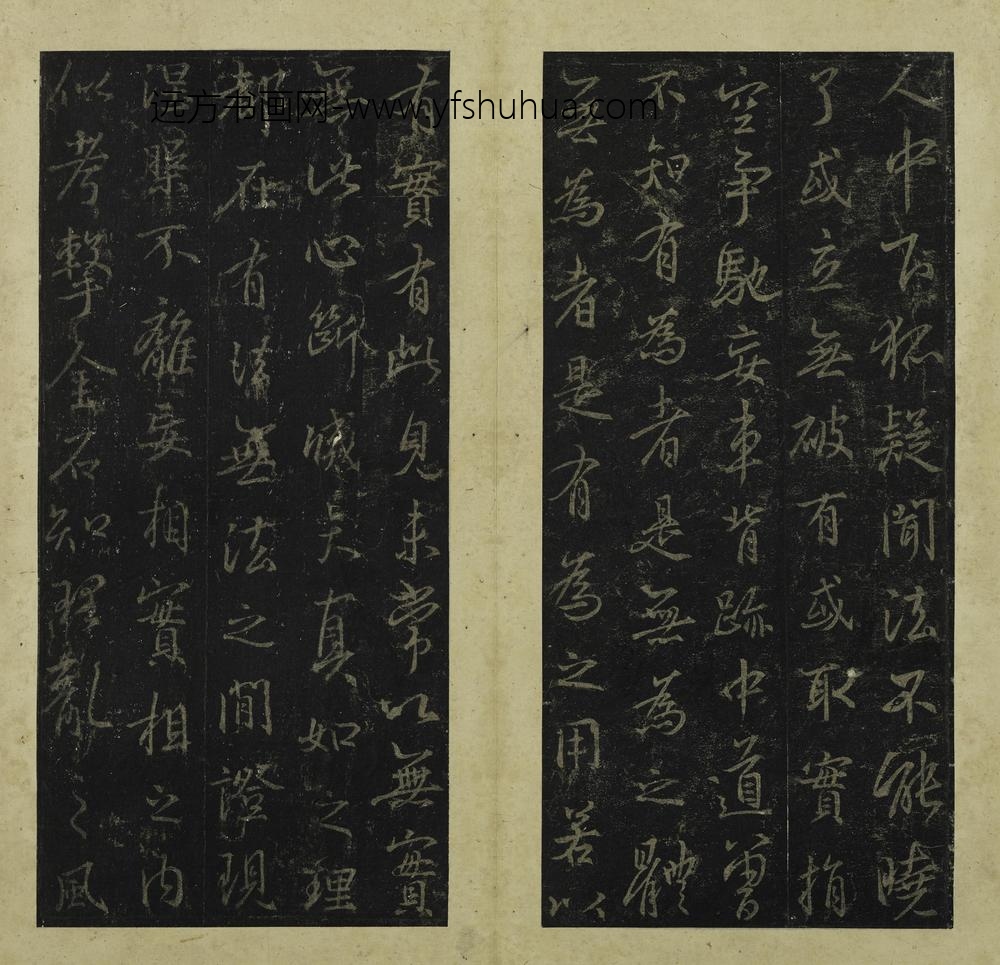 远方书画网-www.yfshuhua.com
人中下狐疑聞法不能曉
了或立無破有或取實捐
空争馳妄車背跡中道曾
不知有為者是無為之體
無為者是有為之用若以
有實有此見未常以無實
無此心斷滅夫真如之理
在有漏無法之間證現
涅槃不離妄相實相之内
似考擊金石知理亂之風